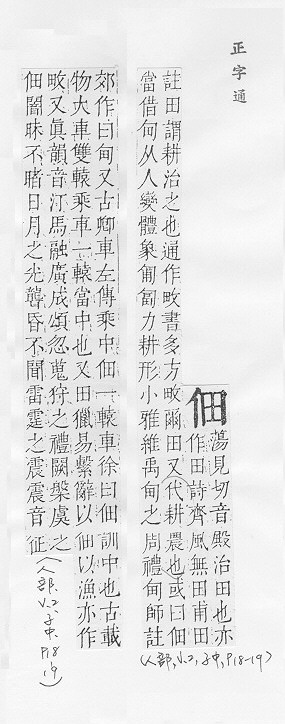 正字通
佃
蕩見切音殿治田也亦
作田詩齊風無田甫田
註田謂耕治之也通作畋書多方畋爾田又代耕農也或曰佃
當借甸从人變體象匍匐力耕形小雅維禹甸之周禮甸師註
郊作曰甸又古卿車左傳乘中佃一轅車徐曰佃訓中也古載
物大車雙轅乘車一轅當中也又田獵易繫辭以佃以漁亦作
畋又眞韻音汀馬融廣成頌忽蒐狩之禮闕槃虞之
佃闇昧不睹日月之光聾昏不聞雷霆之震震音征
(人部,V.2,子中,P.18-19)
(人部,V.2,子中,P.18-19)